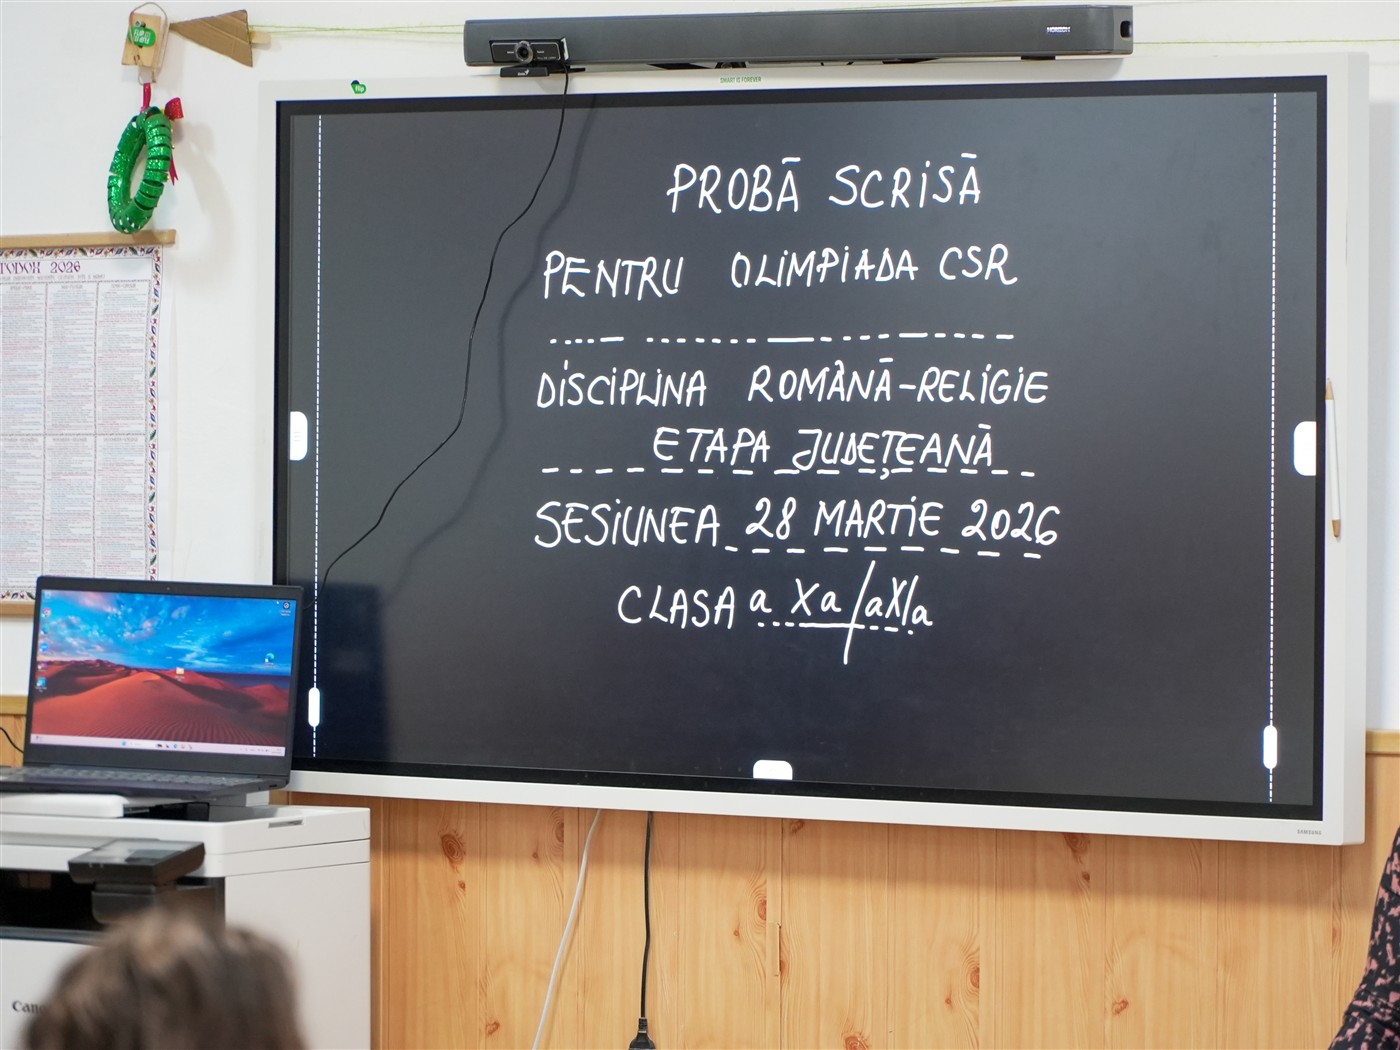 PROBĂ SCRISĂ
PENTRU OLIMPIADA CSR
DISCIPLINA ROMÂNĂ-RELIGIE
ETAPA JUDEȚEANĂ
SESIUNEA 28 MARTIE 2026
CLASA a Xa/aXIa
SMART IS FOREVER
flip
SAMSUNG
TODOX 2026